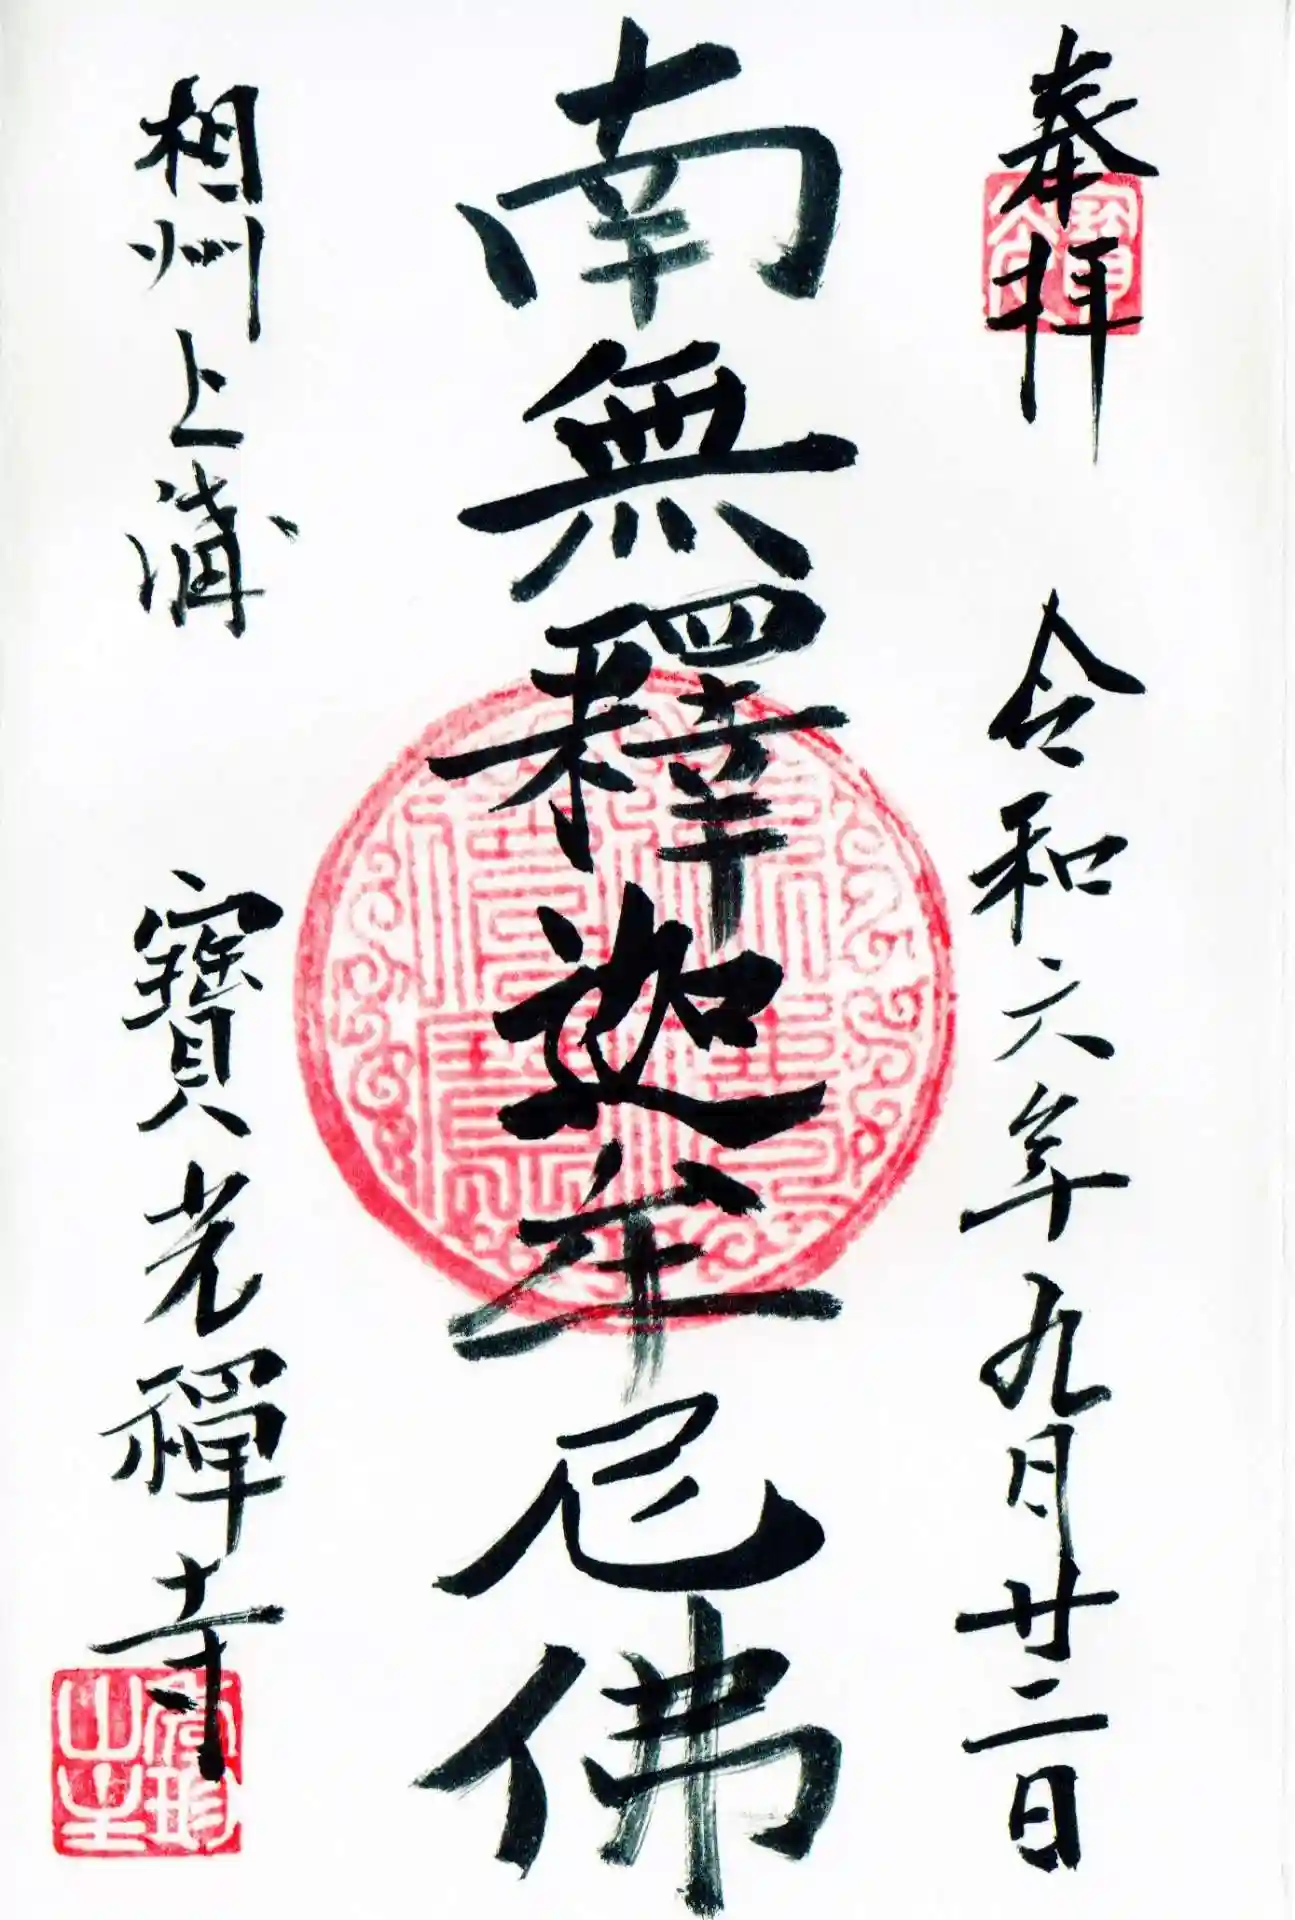 奉拝
令和六年九月廿二日
南無釋迦牟尼佛
相州上溝
寳光禪寺